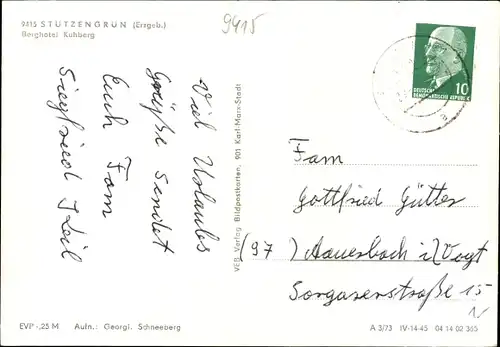 9415
9415 STÜTZENGRÜN (Erzgeb.)
Berghotel Kuhberg
Viel Urlaubs
Grüße sendet
Euch Fam
Siegfried Keil
VEB Verlag Bildpostkarten, 901 Karl-Marx-Stadt
DEUTSCHE
DEMOKRATISCHE REPUBLIK
10
Fam
Gottfried Gütter
(97) Auerbach i/Vogt
Sorgaerstraße 15
EVP -,25 M Aufn.: Georgi, Schneeberg
A 3/73 IV-14-45 04 14 02 365